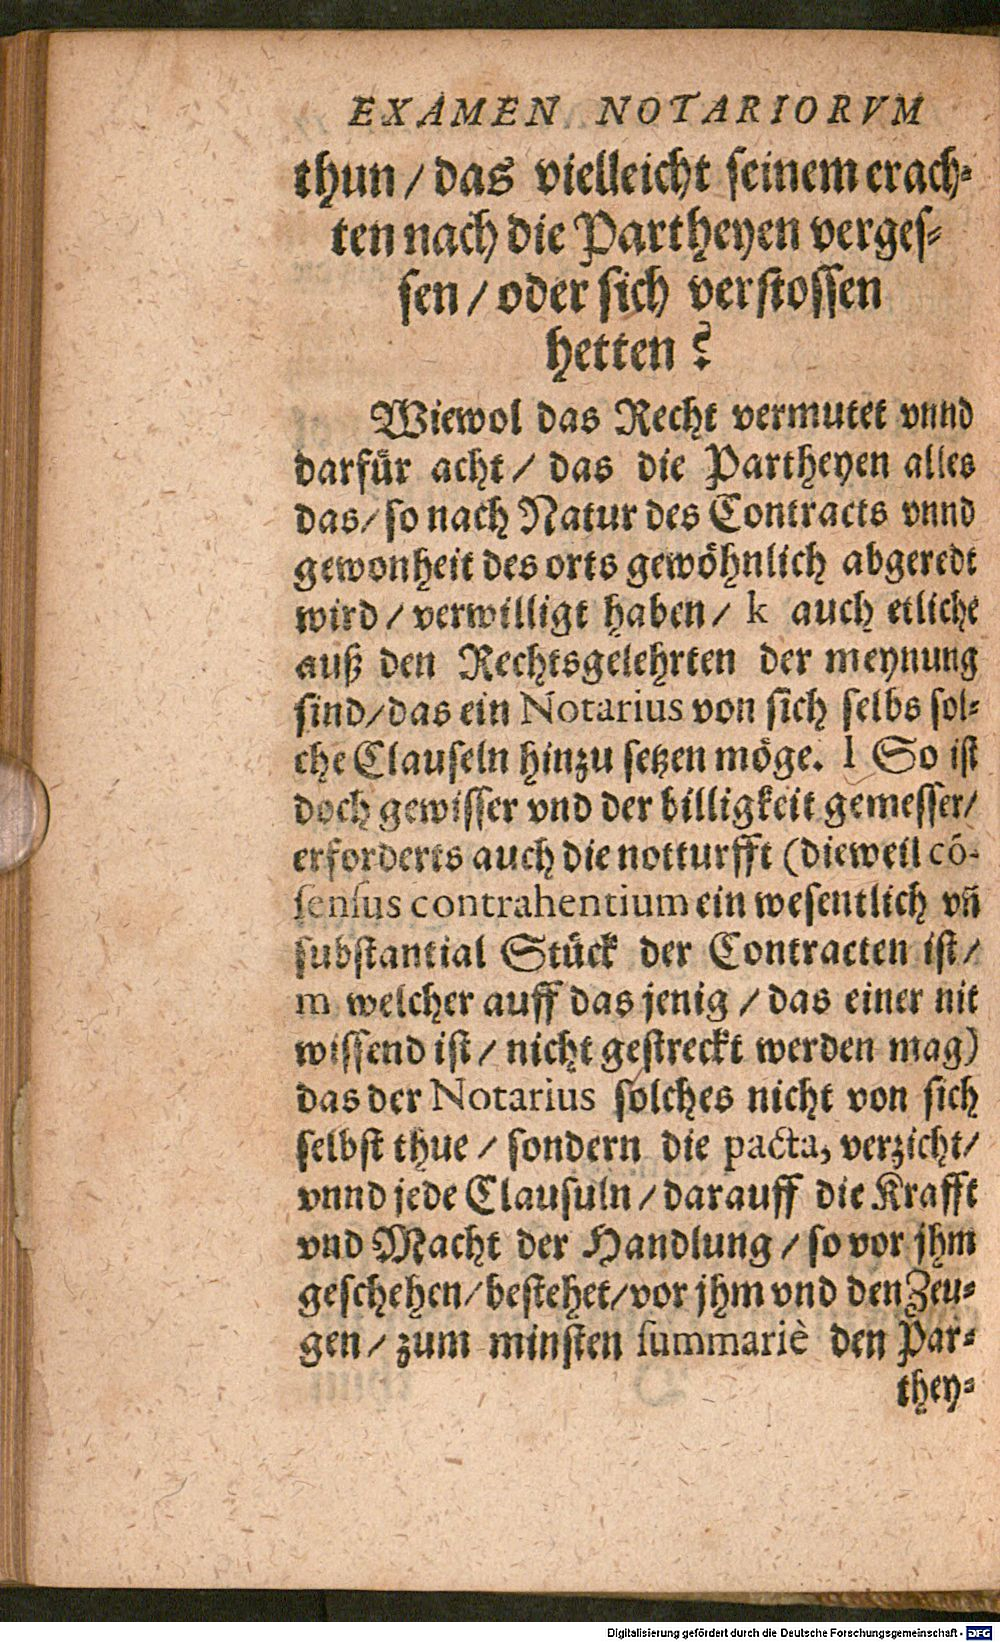 EXAMEN NOTARIORVM
thun / das vielleicht seinem erach-
ten nach die Partheyen verges-
sen / oder sich verstossen
hetten?
Wiewol das Recht vermutet vnnd
darfür acht / das die Partheyen alles
das / so nach Natur des Contracts vnnd
gewonheit des orts gewöhnlich abgeredt
wird / verwilligt haben / k auch etliche
auß den Rechtsgelehrten der meynung
sind / das ein Notarius von sich selbs sol-
che Clauseln hinzu setzen möge. l So ist
doch gewisser vnd der billigkeit gemesser /
erforderts auch die notturfft (dieweil cō-
sensus contrahentium ein wesentlich vñ
substantial Stück der Contracten ist /
m welcher auff das jenig / das einer nit
wissend ist / nicht gestreckt werden mag)
das der Notarius solches nicht von sich
selbst thue / sondern die pacta, verzicht /
vnnd jede Clausuln / darauff die Krafft
vnd Macht der Handlung / so vor jhm
geschehen / bestehet / vor jhm vnd den Zeu-
gen / zum minsten summariè den Par-
they-
Digitalisierung gefördert durch die Deutsche Forschungsgemeinschaft - DFG